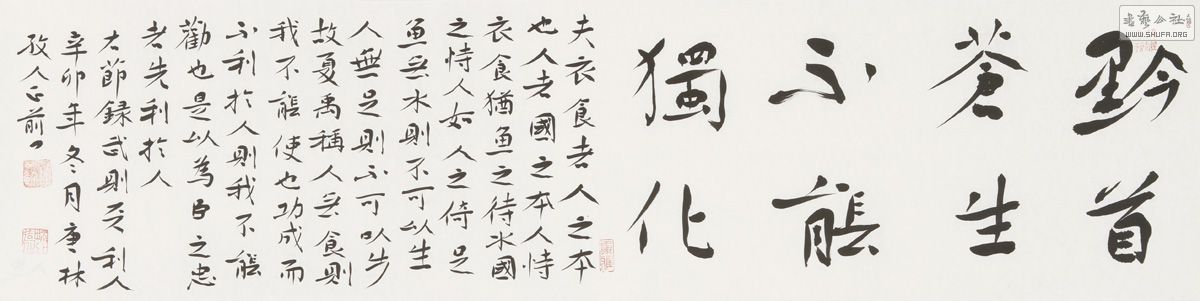 黔首
蒼生
不能
獨化
夫衣食者人之本
也人者國之本人恃
衣食猶魚之待水國
之恃人如人之倚足
魚无水則不可以生
人無足則不可以步
故夏禹稱人无食則
我不能使也功成而
不利於人則我不能
勸也是以為臣之忠
者先利於人
右節錄武則天利人
辛卯年冬月唐林
人正前
書藝公社
WWW.SHUFA.ORG